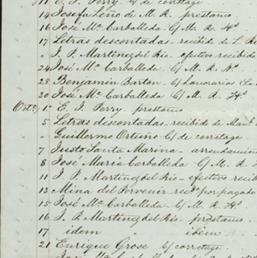 11 E. J. Perry. c/ de corretage
14 Josefa Leño de M. R. prestamo
16 José Ma. Carballeda c/ M. R. Hs.
17 Letras descontadas. recibido de L.
" J. P. Martinez del Rio. efectivo recibido
24 José Ma. Carballeda c/ M. R. Hs.
28 Benjamin Barton. c/
30 José Ma. Carballeda c/ M. R. Hs.
Oct. 1o. E. J. Perry prestamo
5 Letras descontadas. recibido de
" Guillermo Ortiño c/ de corretage
7 Justo Santa Marina. arrendamien
8 José Maria Carballeda c/ M. R.
11 J. P. Martinez del Rio. efectivo recib
13 Mina del Porvenir reco. por pagado
15 José Ma. Carballeda c/ M. R. Hs.
16 J. P. Martinez del Rio. prestamo.
17 idem ibem
21 Enrique Grose c/ corretage